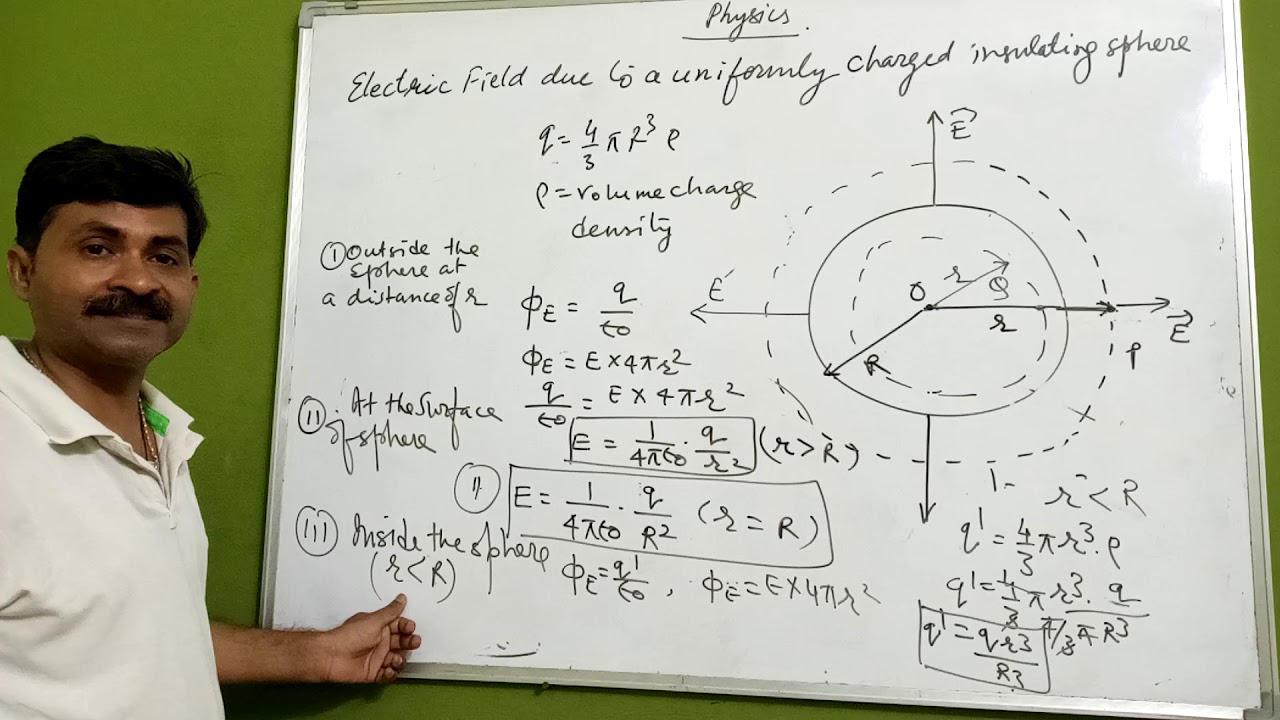 Physics.
Electric Field due to a uniformly charged insulating sphere
q = 4/3 π R³ ρ
ρ = volume charge
density
(I) Outside the
sphere at
a distance of r
ϕE = q/ϵ0
ϕE = E × 4πr²
q/ϵ0 = E × 4πr²
E = 1/4πϵ0 . q/r² (r > R)
(II) At the surface
of sphere
(II) E = 1/4πϵ0 . q/R² (r = R)
(III) Inside the sphere
(r < R)
ϕE = q'/ϵ0 , ϕE = E × 4πr²
E
E
O
r
Q
r
R
E
P
r < R
q' = 4/3 πr³ . ρ
q' = 4/3 π r³ . q / 4/3 π R³
q' = qr³/R³